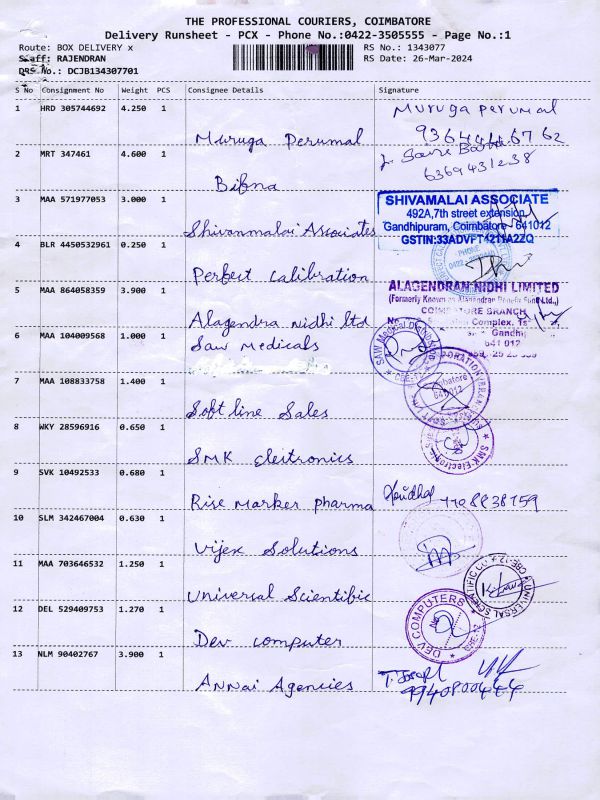 THE PROFESSIONAL COURIERS, COIMBATORE
Delivery Runsheet - PCX - Phone No.:0422-3505555 - Page No.:1
Route: BOX DELIVERY x
RS No.: 1343077
Staff: RAJENDRAN
RS Date: 26-Mar-2024
DRS No.: DCJB134307701
S No Consignment No Weight PCS Consignee Details Signature
1 HRD 305744692 4.250 1 Muruga Perumal Muruga Perumal
2 MRT 347461 4.600 1 Bifna
6369431238
3 MAA 571977053 3.000 1 Shivanmalai Associates
SHIVAMALAI ASSOCIATE
492A,7th street extension,
Gandhipuram, Coimbatore - 641012
GSTIN:33ADVFT4211A2ZQ
4 BLR 4450532961 0.250 1 Perfect calibration
5 MAA 864058359 3.900 1 Alagendra nidhi ltd
ALAGENDRAN NIDHI LIMITED
(Formerly Known as Alagendran Benefit Fund Ltd.,)
COIMBATORE BRANCH
Complex.
Gandhi
641 012
6 MAA 104009568 1.000 1 Saw Medicals
SAW Medical
7 MAA 108833758 1.400 1 Soft line Sales
641 012
8 WKY 28596916 0.650 1 SMK electronics
SMK Electro
9 SVK 10492533 0.680 1 Rise Marker pharma
10 SLM 342467004 0.630 1 Vijex Solutions
11 MAA 703646532 1.250 1 Universal Scientific
UNIVERSAL SCIENTIFIC CO CBE-12
12 DEL 529409753 1.270 1 Dev computer
DEV COMPUTERS
13 NLM 90402767 3.900 1 Annai Agencies
T. Joseph
9940800444